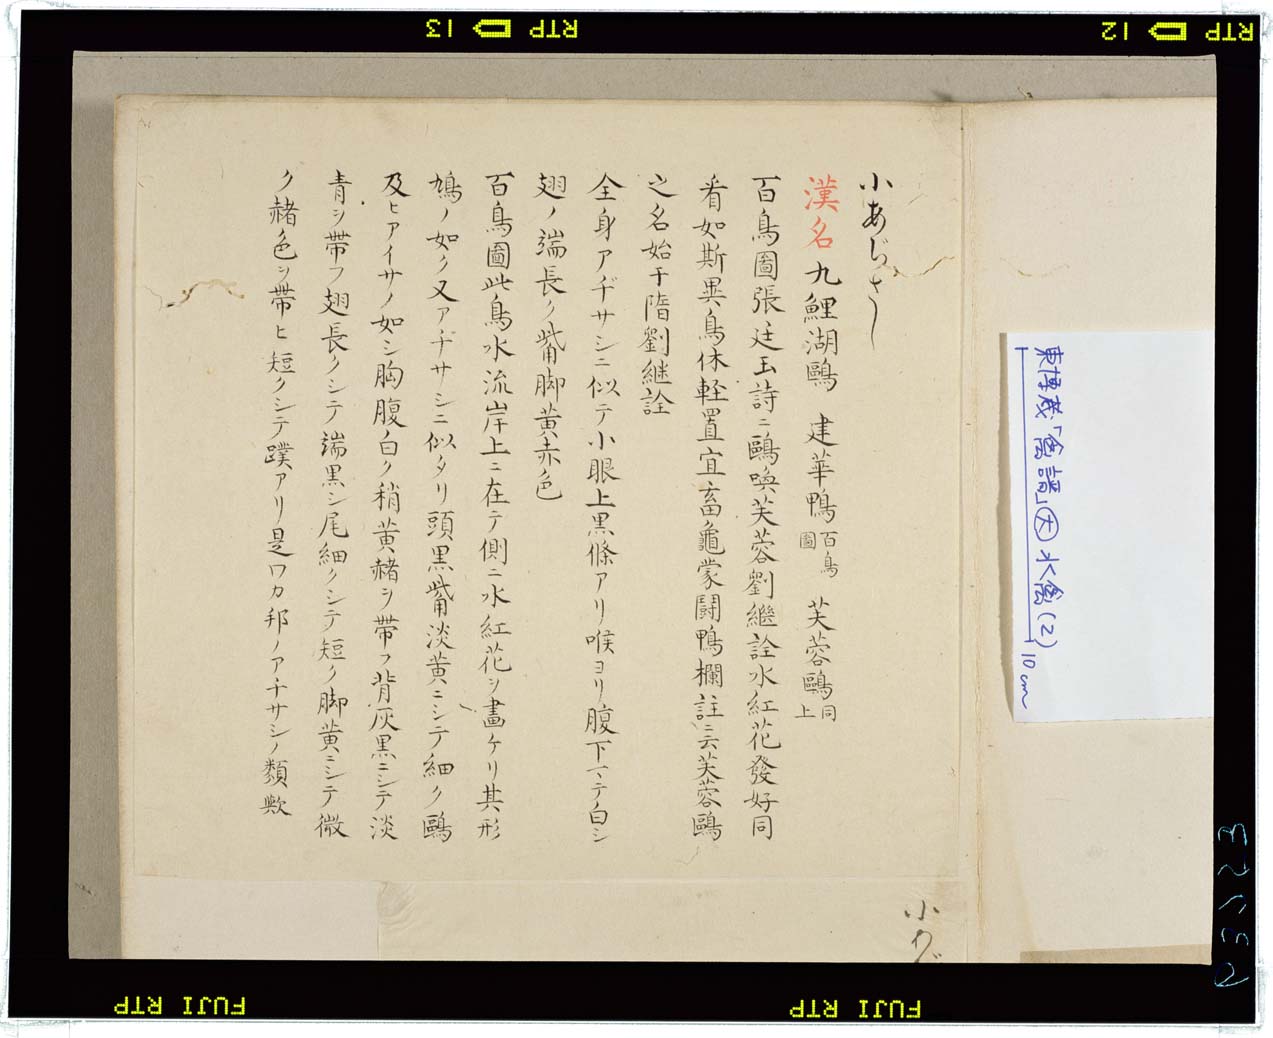 小あぢさし
漢名 九鯉湖鷗 建華鴨 百鳥圖 芙蓉鷗 同上
百鳥圖張廷玉詩ニ鷗喚芙蓉劉繼詮水紅花發好同
看如斯異鳥休輕置宜畜龜蒙鬪鴨欄註ニ云芙蓉鷗
之名始于隋劉継詮
全身アヂサシニ似テ小眼上黒條アリ喉ヨリ腹下マテ白シ
翅ノ端長ク觜脚黄赤色
百鳥圖此鳥水流岸上ニ在テ側ニ水紅花ヲ畫ケリ其形
鳩ノ如ク又アヂサシニ似タリ頭黒觜淡黄ニシテ細ク鷗
及ヒアイサノ如シ胸腹白ク稍黄赭ヲ帶フ背灰黒ニシテ淡
青ヲ帶フ翅長クシテ端黒シ尾細クシテ短ク脚黄ニシテ微
ク赭色ヲ帶ヒ短クシテ蹼アリ是ワカ邦ノアチサシノ類歟
小かぐ
東博蔵「禽譜」大 水禽(2)
10cm
RTP 13
RTP 12
FUJI RTP
FUJI RTP